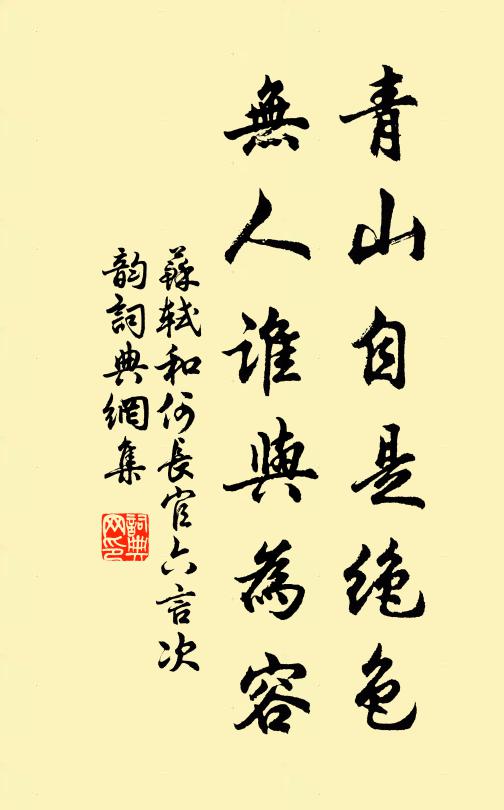 青山自是绝色
無人誰與為容
蘇軾和何長官六言次
韵詞典網集
詞典
网印